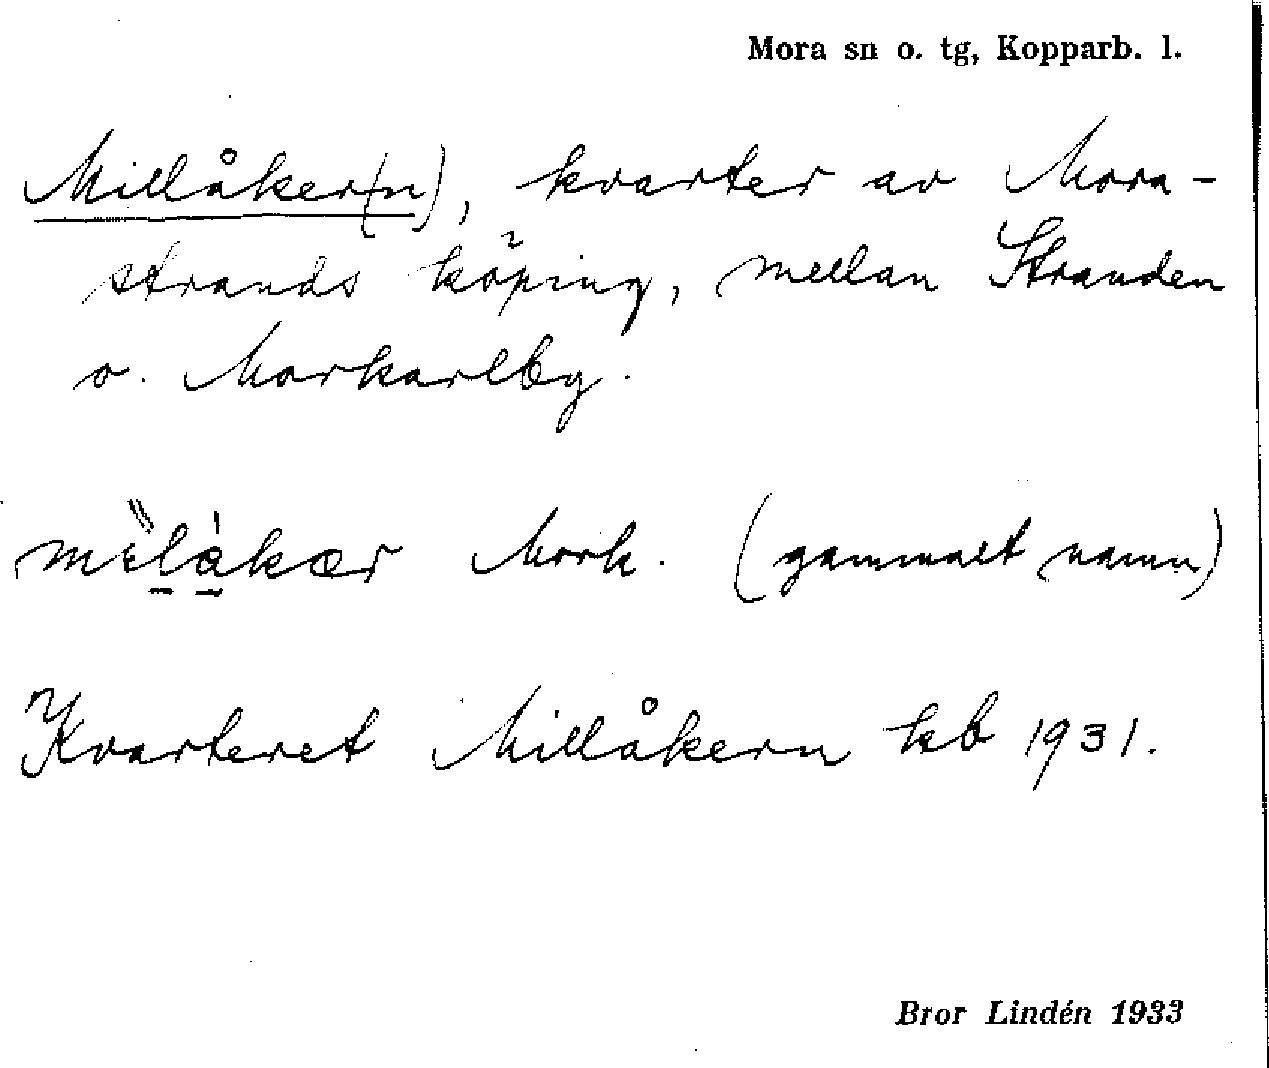 Mora sn o. tg, Kopparb. l.
Millåker(n), kvarter av Mora-
strands köping, mellan Stranden
o. Morkarlby.
mèlàkær Mork. (gammalt namn)
Kvarteret Millåkern kb 1931.
Bror Lindén 1933